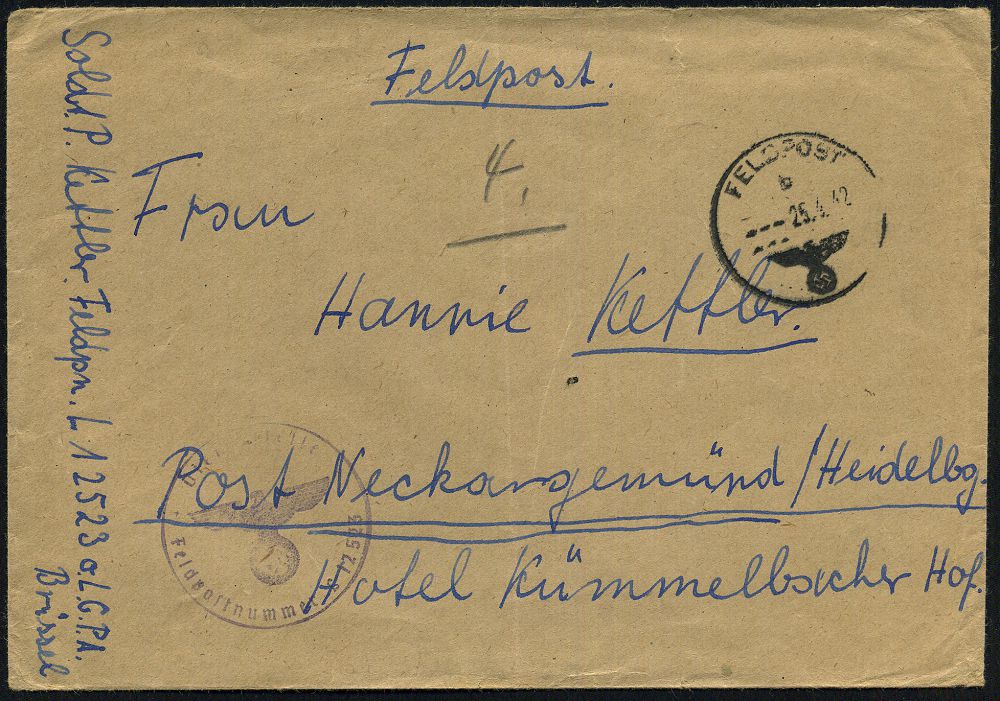 Feldpost.
4.
FELDPOST
b
25.4.42
Frau
Hannie Kettler.
Post Neckargemünd/Heidelbg.
Hotel Kümmelbacher Hof.
Soldt. P. Kettler. Feldpn. L 12523 a. L.G.P.A.
Brüssel
Feldpostnummer 12523